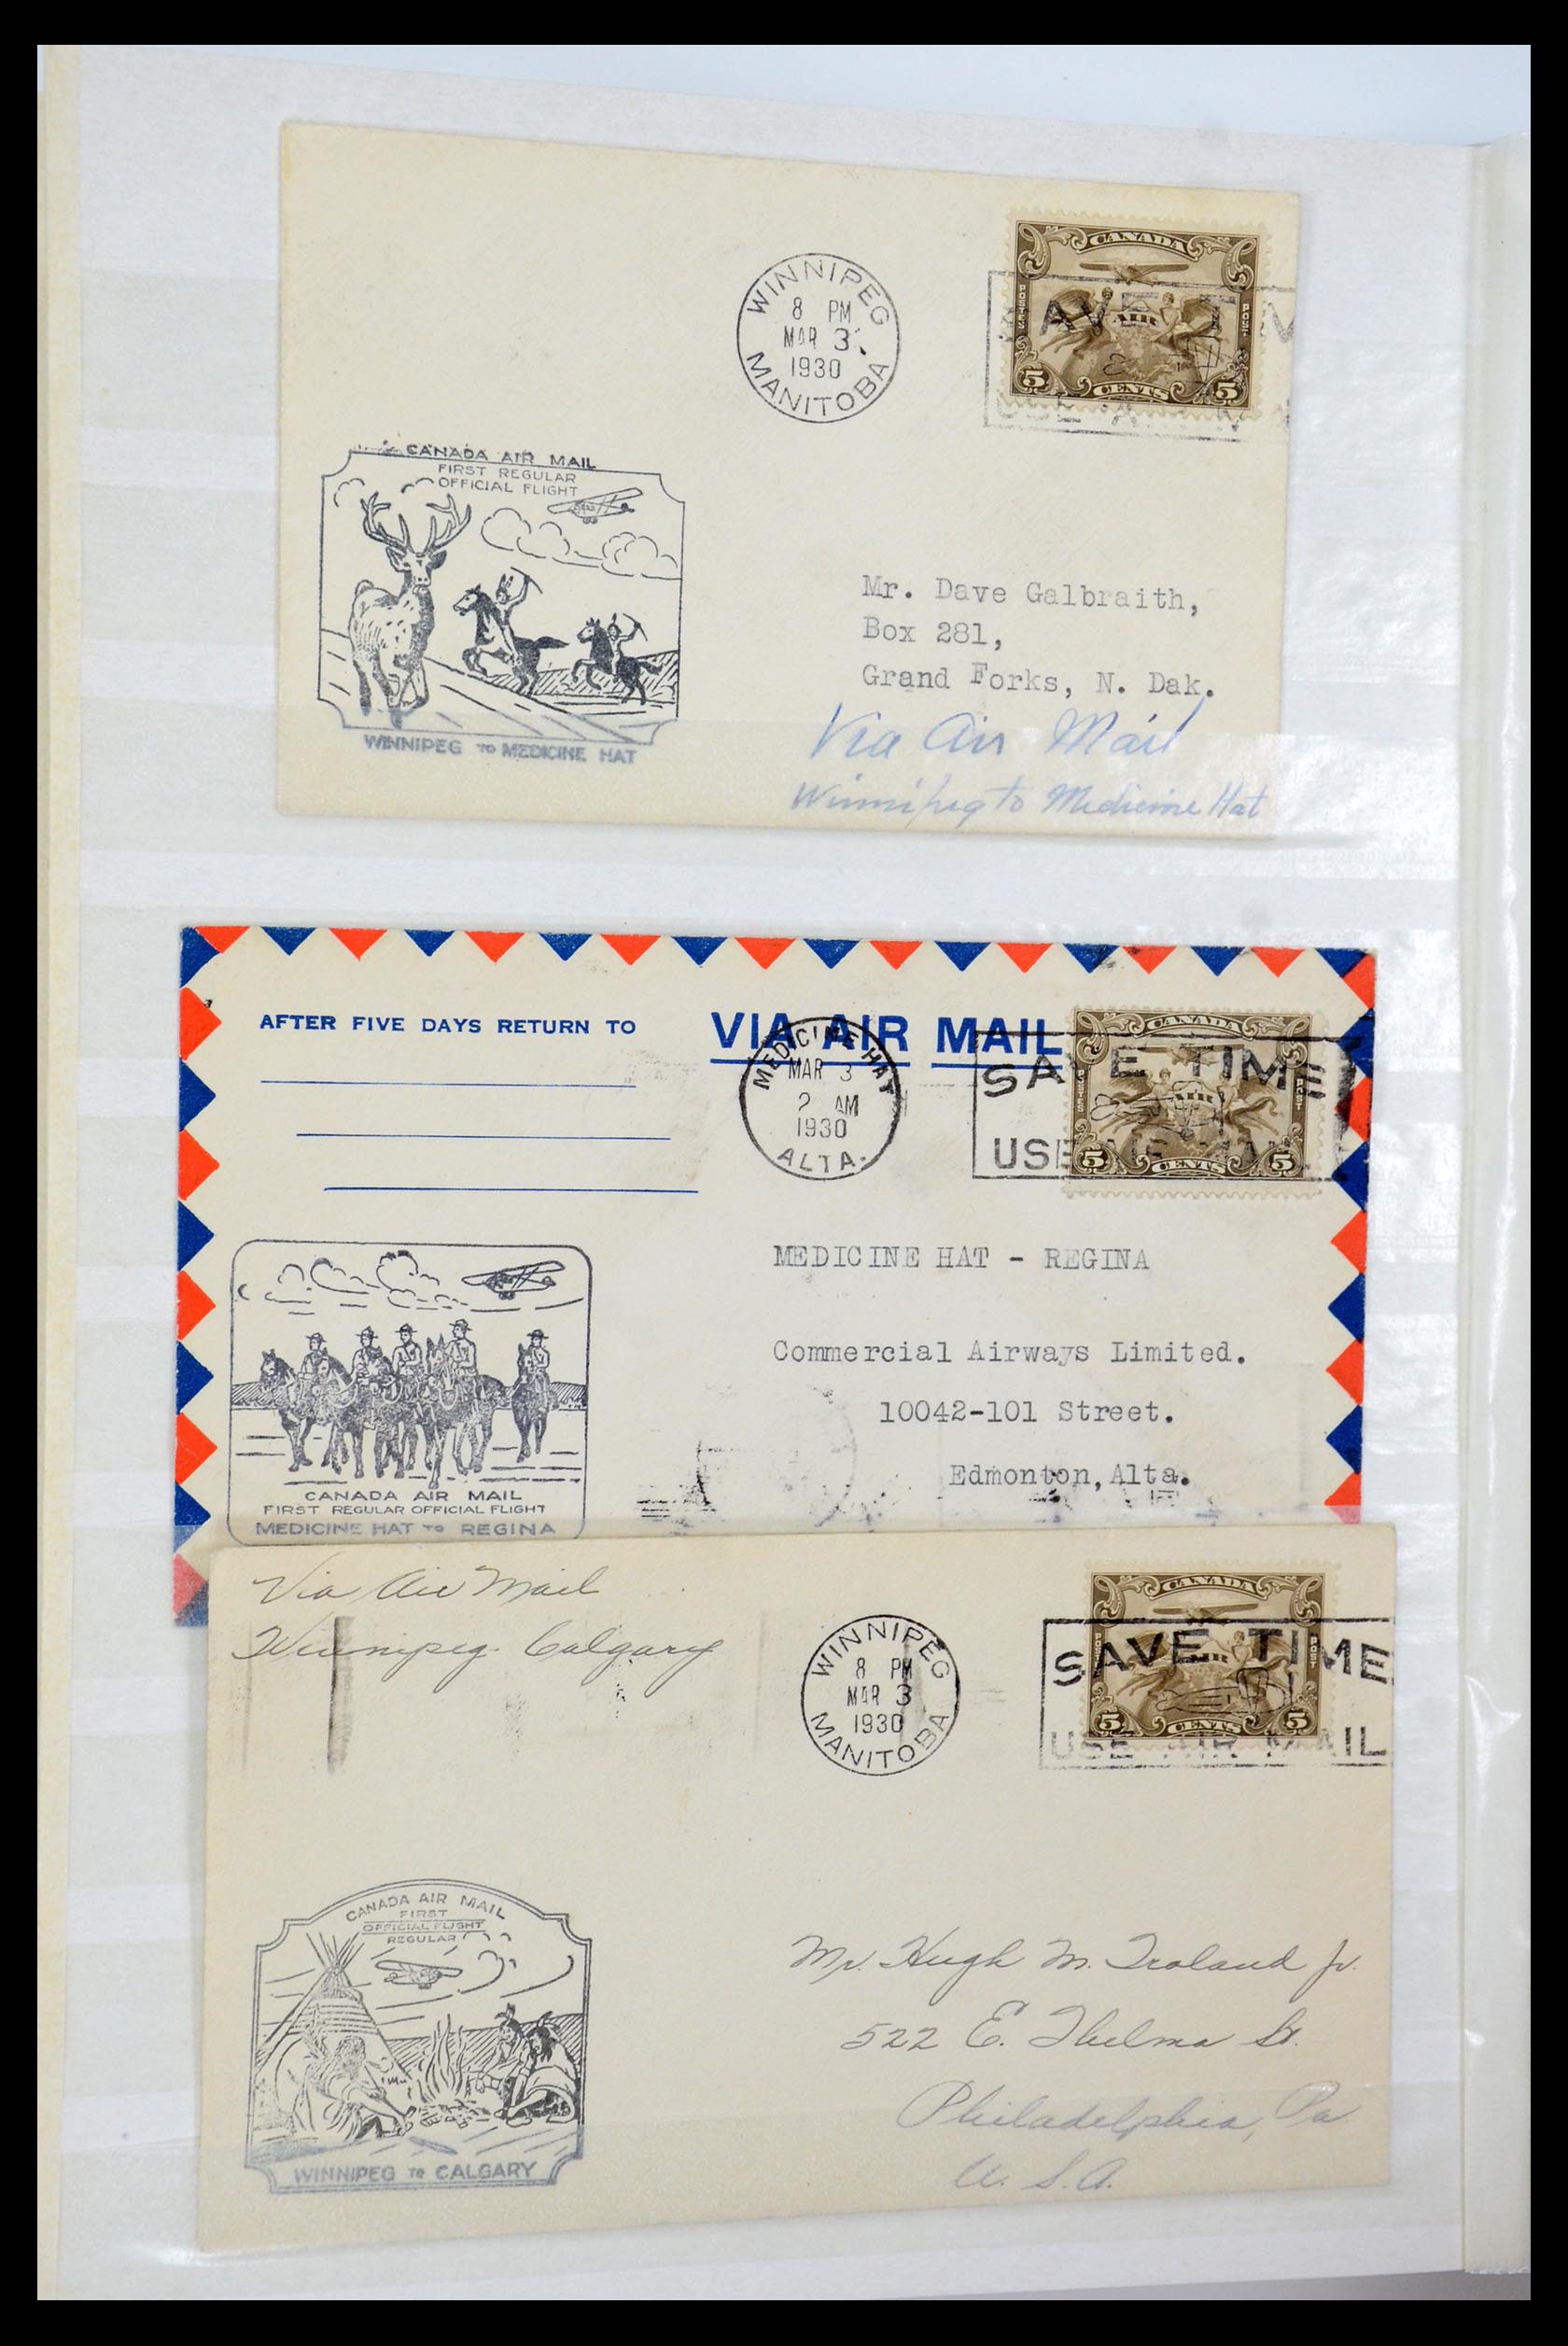 WINNIPEG
8 PM
MAR 3
1930
MANITOBA
CANADA
POSTES
POST
AIR
5 CENTS 5
CANADA AIR MAIL
FIRST REGULAR
OFFICIAL FLIGHT
WINNIPEG TO MEDICINE HAT
Mr. Dave Galbraith,
Box 281,
Grand Forks, N. Dak.
Via Air Mail
Winnipeg to Medicine Hat
AFTER FIVE DAYS RETURN TO
VIA AIR MAIL
MEDICINE HAT
MAR 3
2 AM
1930
ALTA.
SAVE TIME
USE AIR MAIL
CANADA
POSTES
POST
AIR
5 CENTS 5
MEDICINE HAT - REGINA
Commercial Airways Limited.
10042-101 Street.
Edmonton, Alta.
CANADA AIR MAIL
FIRST REGULAR OFFICIAL FLIGHT
MEDICINE HAT TO REGINA
Via Air Mail
Winnipeg Calgary
WINNIPEG
8 PM
MAR 3
1930
MANITOBA
SAVE TIME
USE AIR MAIL
CANADA
POSTES
POST
AIR
5 CENTS 5
CANADA AIR MAIL
FIRST
OFFICIAL FLIGHT
REGULAR
WINNIPEG TO CALGARY
Mr. Hugh M. Troland Jr.
522 E. Thelma St.
Philadelphia, Pa
U. S. A.